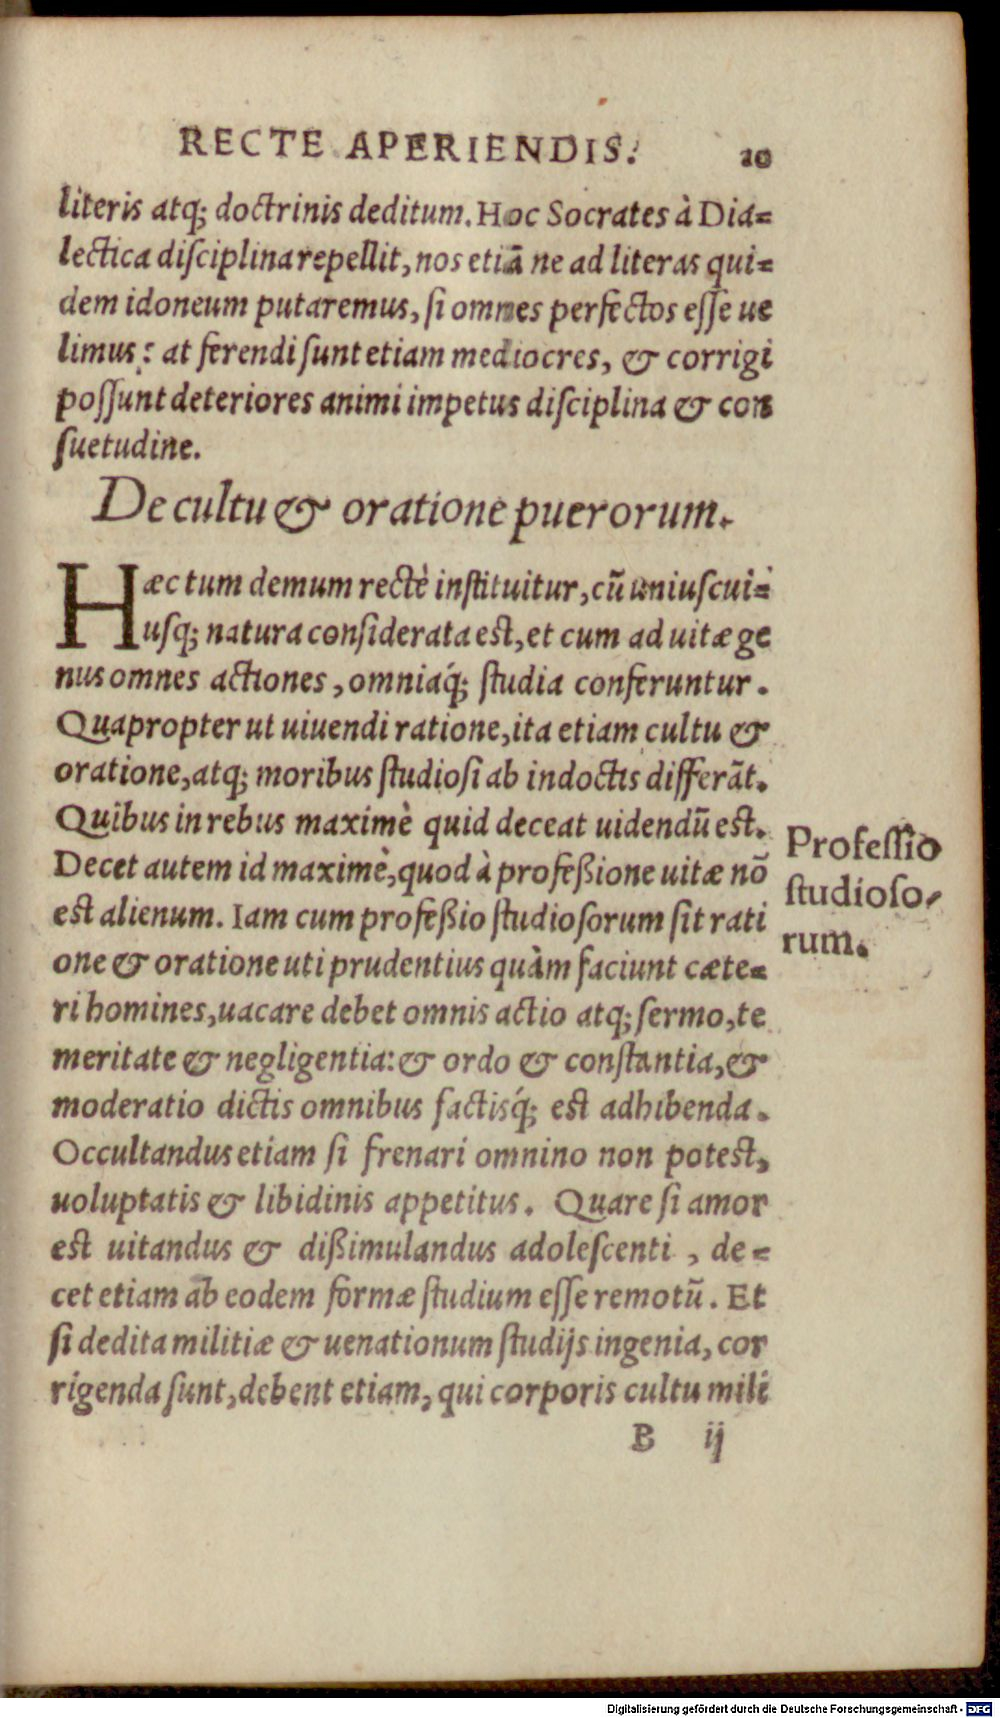 RECTE APERIENDIS. 10
literis atq; doctrinis deditum. Hoc Socrates à Dia=
lectica disciplina repellit, nos etiā ne ad literas qui=
dem idoneum putaremus, si omnes perfectos esse ue
limus: at ferendi sunt etiam mediocres, & corrigi
possunt deteriores animi impetus disciplina & con
suetudine.
De cultu & oratione puerorum.
Hæc tum demum rectè instituitur, cū uniuscui=
usq; natura considerata est, et cum ad uitæ ge
nus omnes actiones, omniaq́; studia conferuntur.
Quapropter ut uiuendi ratione, ita etiam cultu &
oratione, atq; moribus studiosi ab indoctis differāt.
Quibus in rebus maximè quid deceat uidendū est.
Decet autem id maximè, quod à profeßione uitæ nō
est alienum. Iam cum profeßio studiosorum sit rati
one & oratione uti prudentius quàm faciunt cæte=
ri homines, uacare debet omnis actio atq; sermo, te
meritate & negligentia: & ordo & constantia, &
moderatio dictis omnibus factisq́; est adhibenda.
Occultandus etiam si frenari omnino non potest,
uoluptatis & libidinis appetitus. Quare si amor
est uitandus & dißimulandus adolescenti, de=
cet etiam ab eodem formæ studium esse remotū. Et
si dedita militiæ & uenationum studijs ingenia, cor
rigenda sunt, debent etiam, qui corporis cultu mili
B ij
Professio
studioso-
rum.
Digitalisierung gefördert durch die Deutsche Forschungsgemeinschaft - DFG